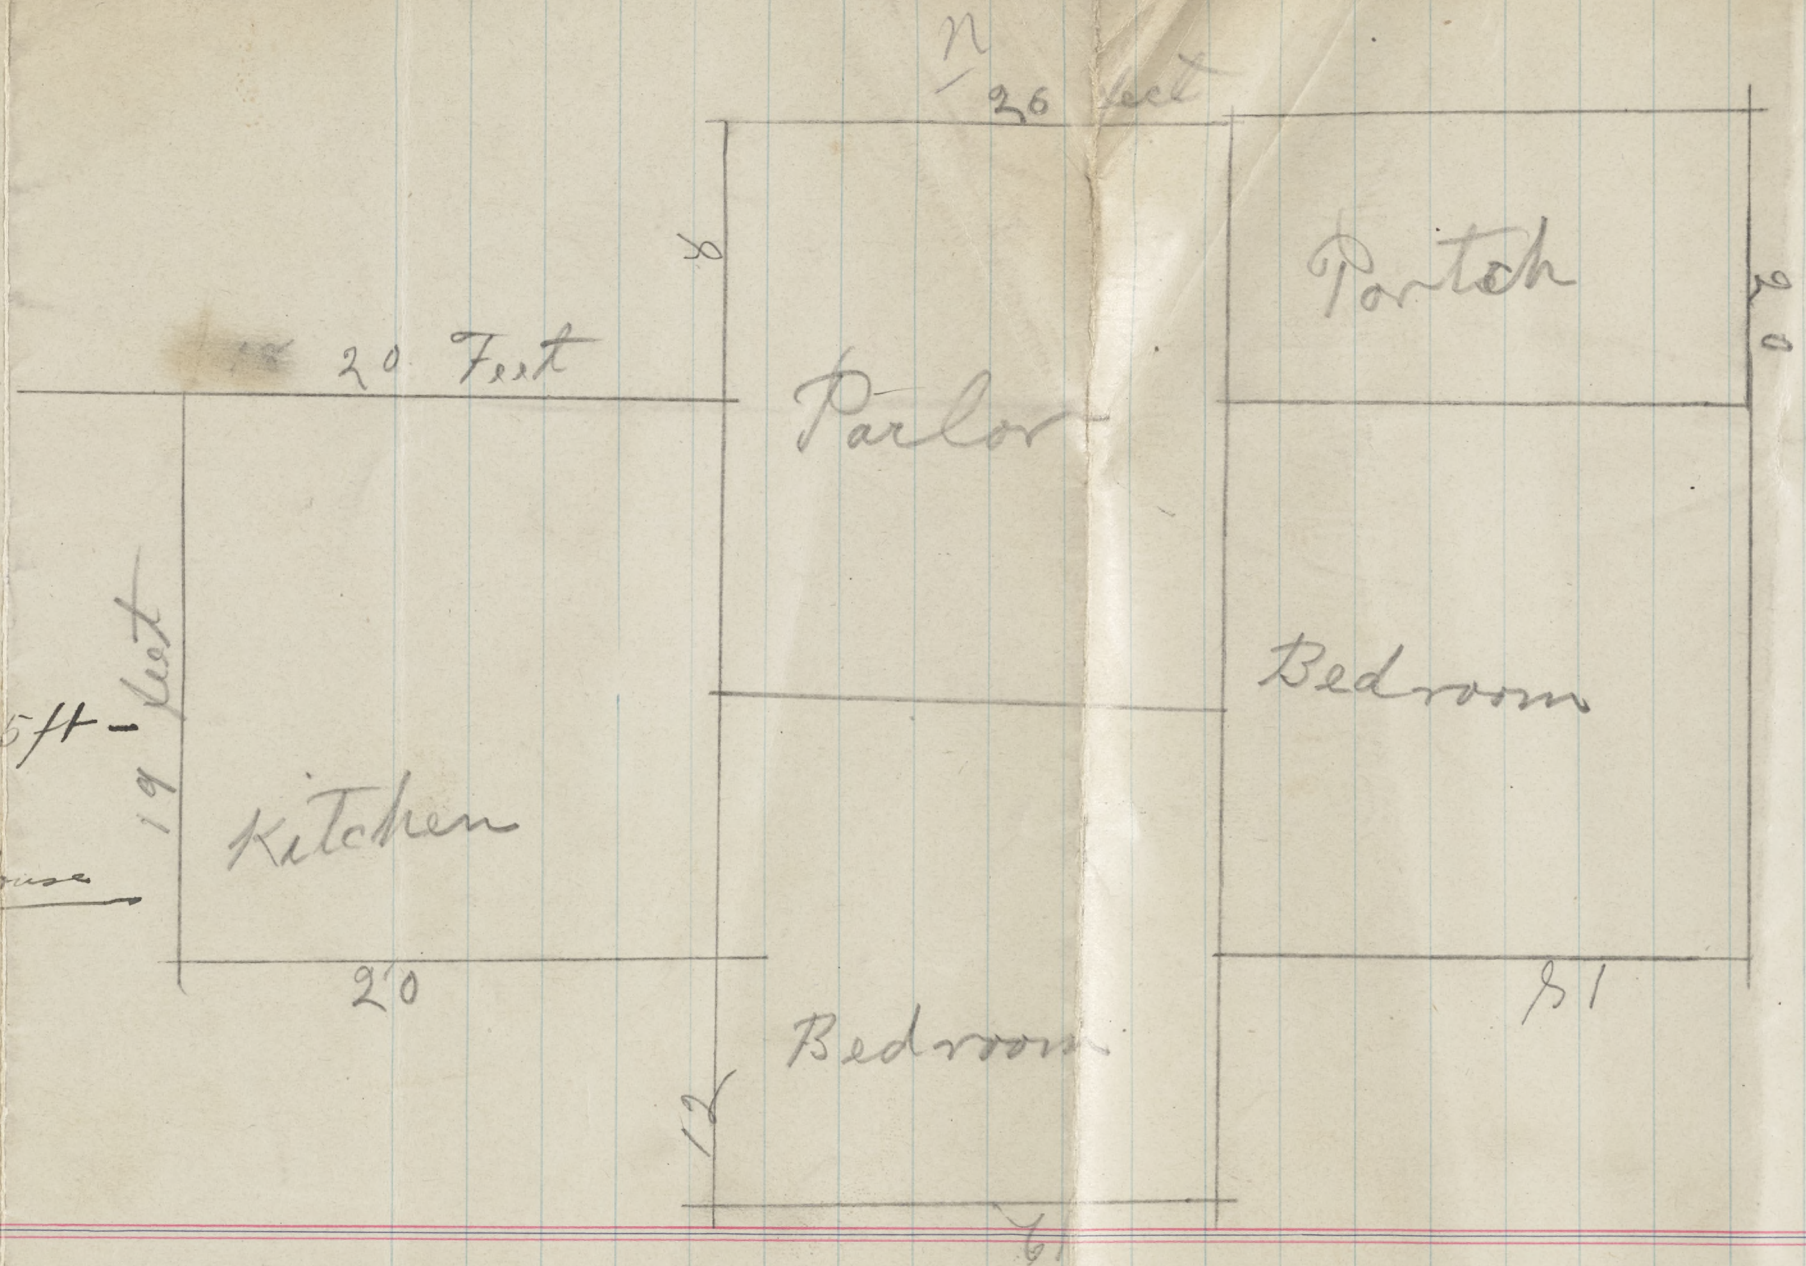 N
26 feet
8
Portch
20
20 Feet
Parlor
19 feet
Bedroom
5ft -
Kitchen
20
Bedroom
12